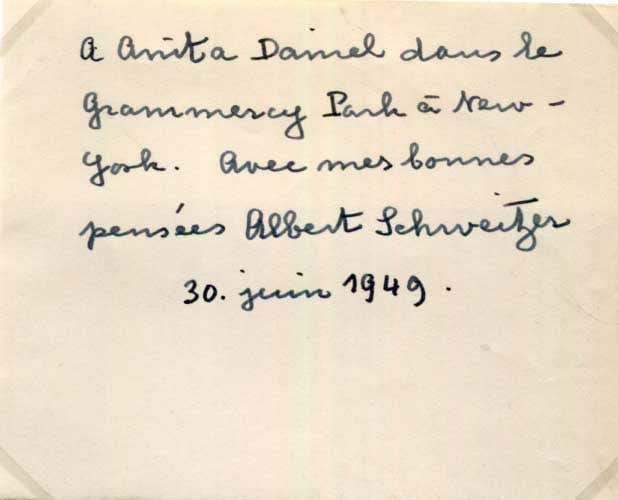 A Anita Daniel dans le
Grammercy Park à New-
York. Avec mes bonnes
pensées Albert Schweitzer
30. juin 1949.